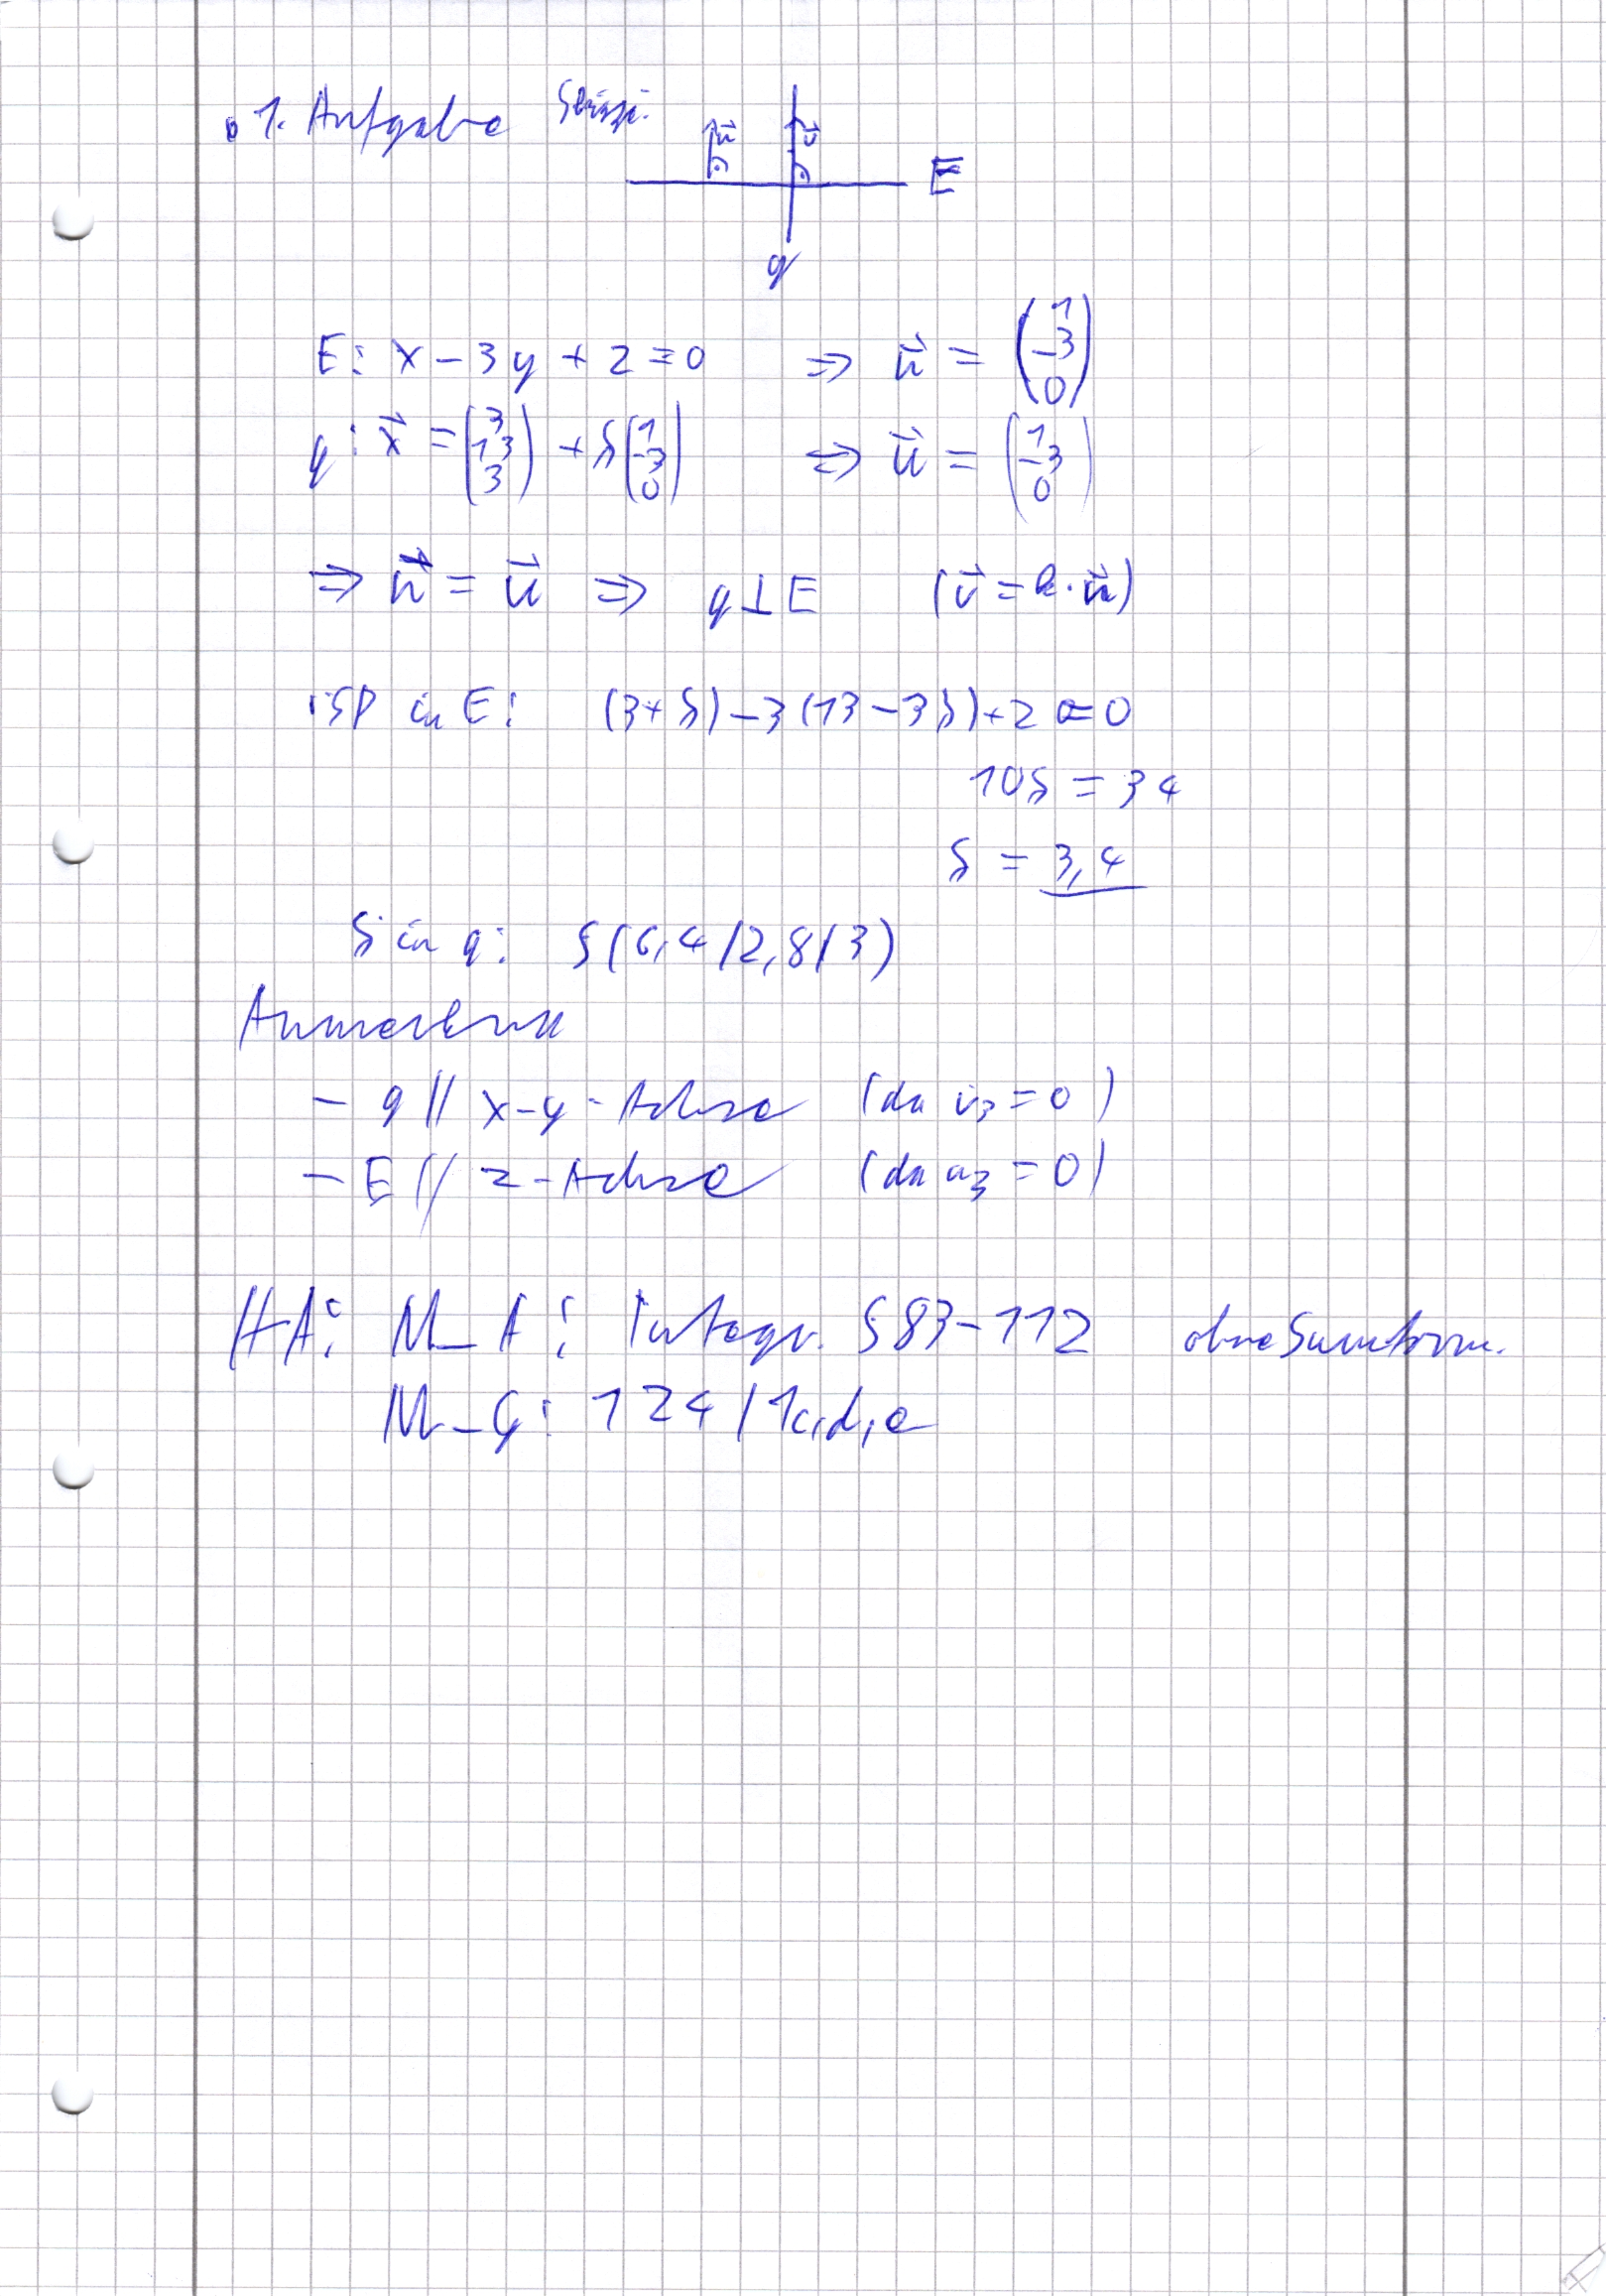 1. Aufgabe Skizze:
n⃗ v⃗ E
g
E: x - 3y + 2 = 0 ⇒ n⃗ = (1 -3 0)
g: x⃗ = (3 13 3) + s(1 -3 0) ⇒ u⃗ = (1 -3 0)
⇒ n⃗ = u⃗ ⇒ g ⊥ E (v⃗ = k · n⃗)
in E: (3 + s) - 3(13 - 3s) + 2 = 0
10s = 34
s = 3,4
S in g: S(6,4/2,8/3)
- g || x-y-Achse (da v₃ = 0)
- E // z-Achse (da n₃ = 0)
HA: M_A: Integr. S83-112 ohne
M_G: 124/1c,d,e